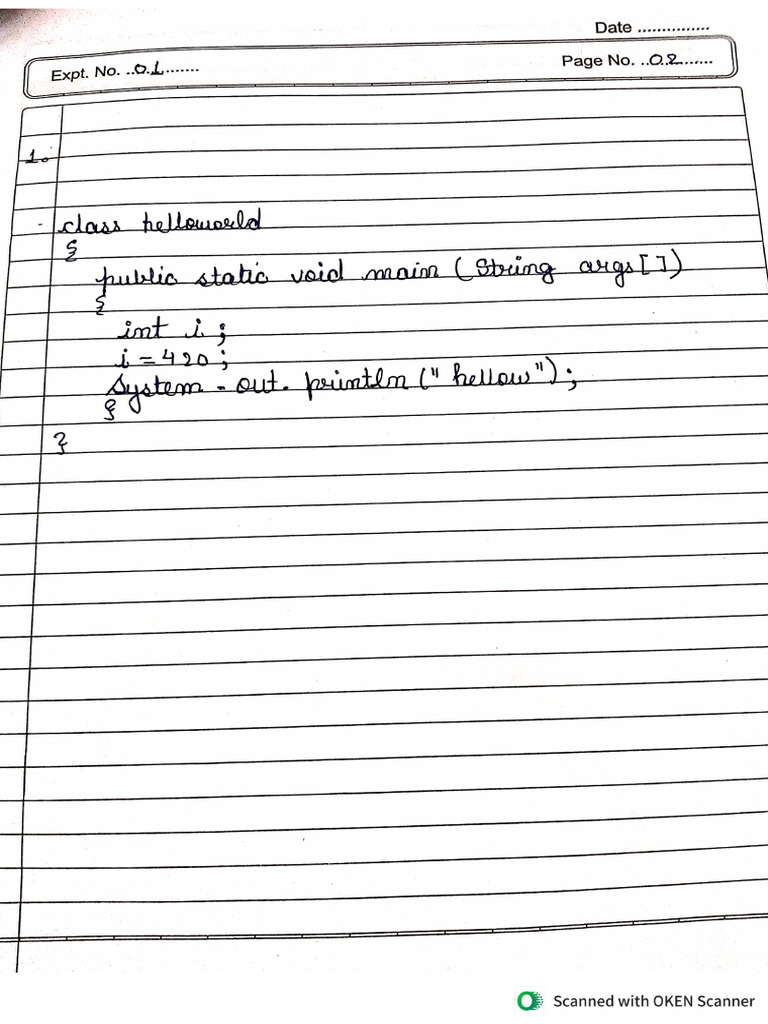 Date ...............
Expt. No. ..01.......
Page No. ..02.......
1.
- class helloworld
{
public static void main (String args[])
{
int i ;
i = 420 ;
System . out . println (" hellow") ;
}
}
Scanned with OKEN Scanner